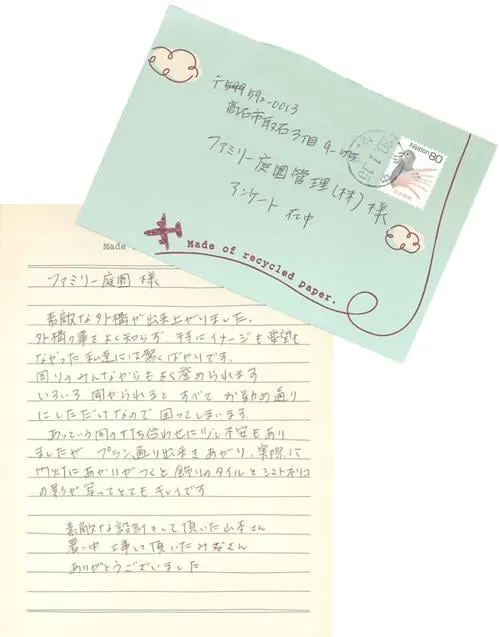 〒599 592-0013
高石市取石3丁目9-
ファミリー庭園管理(株)様
アンケート 在中
Nippon 80
Made of recycled paper.
Made
ファミリー庭園 様
素敵な外構が出来上がりました。
外構の事をよく知らず 特にイメージも要望も
なかった私達には驚くばかりです。
周りのみんなからもよく誉められます
いろいろ聞かられますと すべて お勧め通り
にしただけなので 困ってしまいます。
あっという間の打ち合わせに少し不安もあり
ましたが プラン通り出来あがり、実際に
門灯にあかりがつくと 飾りのタイルと シマトネリコ
の影が写ってとてもキレイです
素敵な設計をして頂いた山本さん
暑い中 工事して頂いたみなさん
ありがとうございました